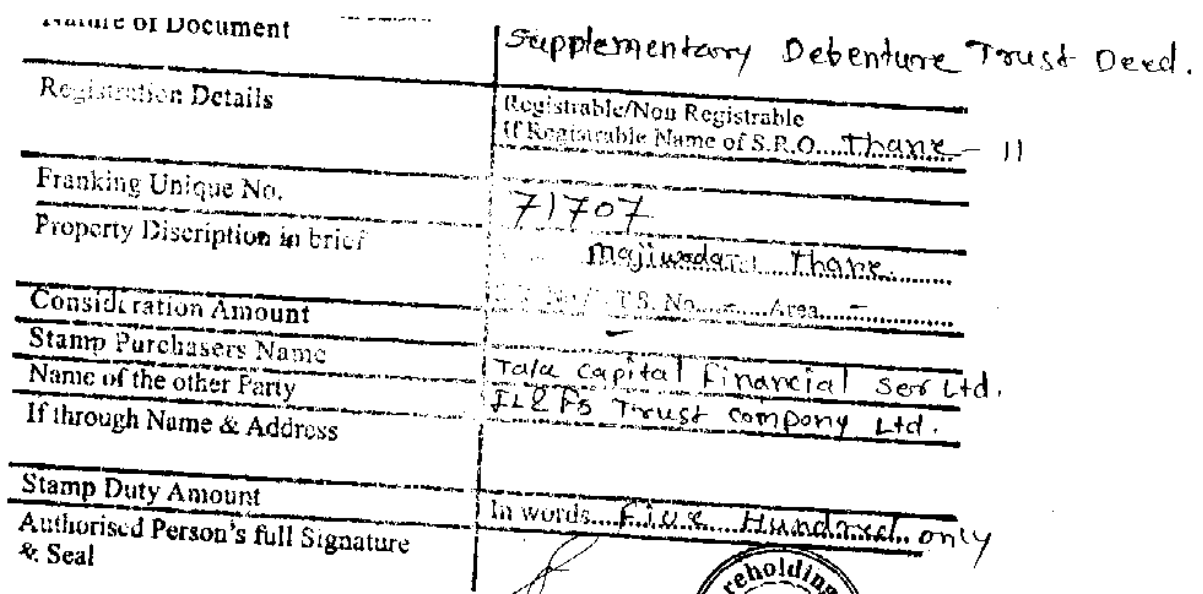 Nature of Document Supplementary Debenture Trust Deed.
Registration Details Registrable/Non Registrable
If Registrable Name of S.R.O.....Thane - 11
Franking Unique No. 71707
Property Discription in brief Majiwada Thane
T.S. No. - Area -
Consideration Amount -
Stamp Purchasers Name Tata Capital Financial Ser Ltd.
Name of the other Party IL&FS Trust Company Ltd.
If through Name & Address
Stamp Duty Amount In words....Five Hundred only
Authorised Person's full Signature
& Seal